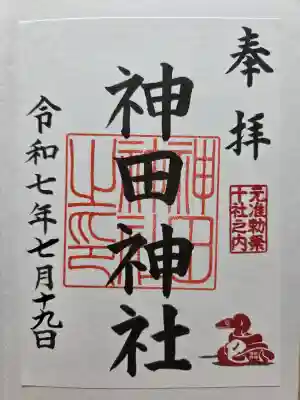 奉拝
元准勅祭
十社之内
神田神社
神田
神社
之印
令和七年七月十九日